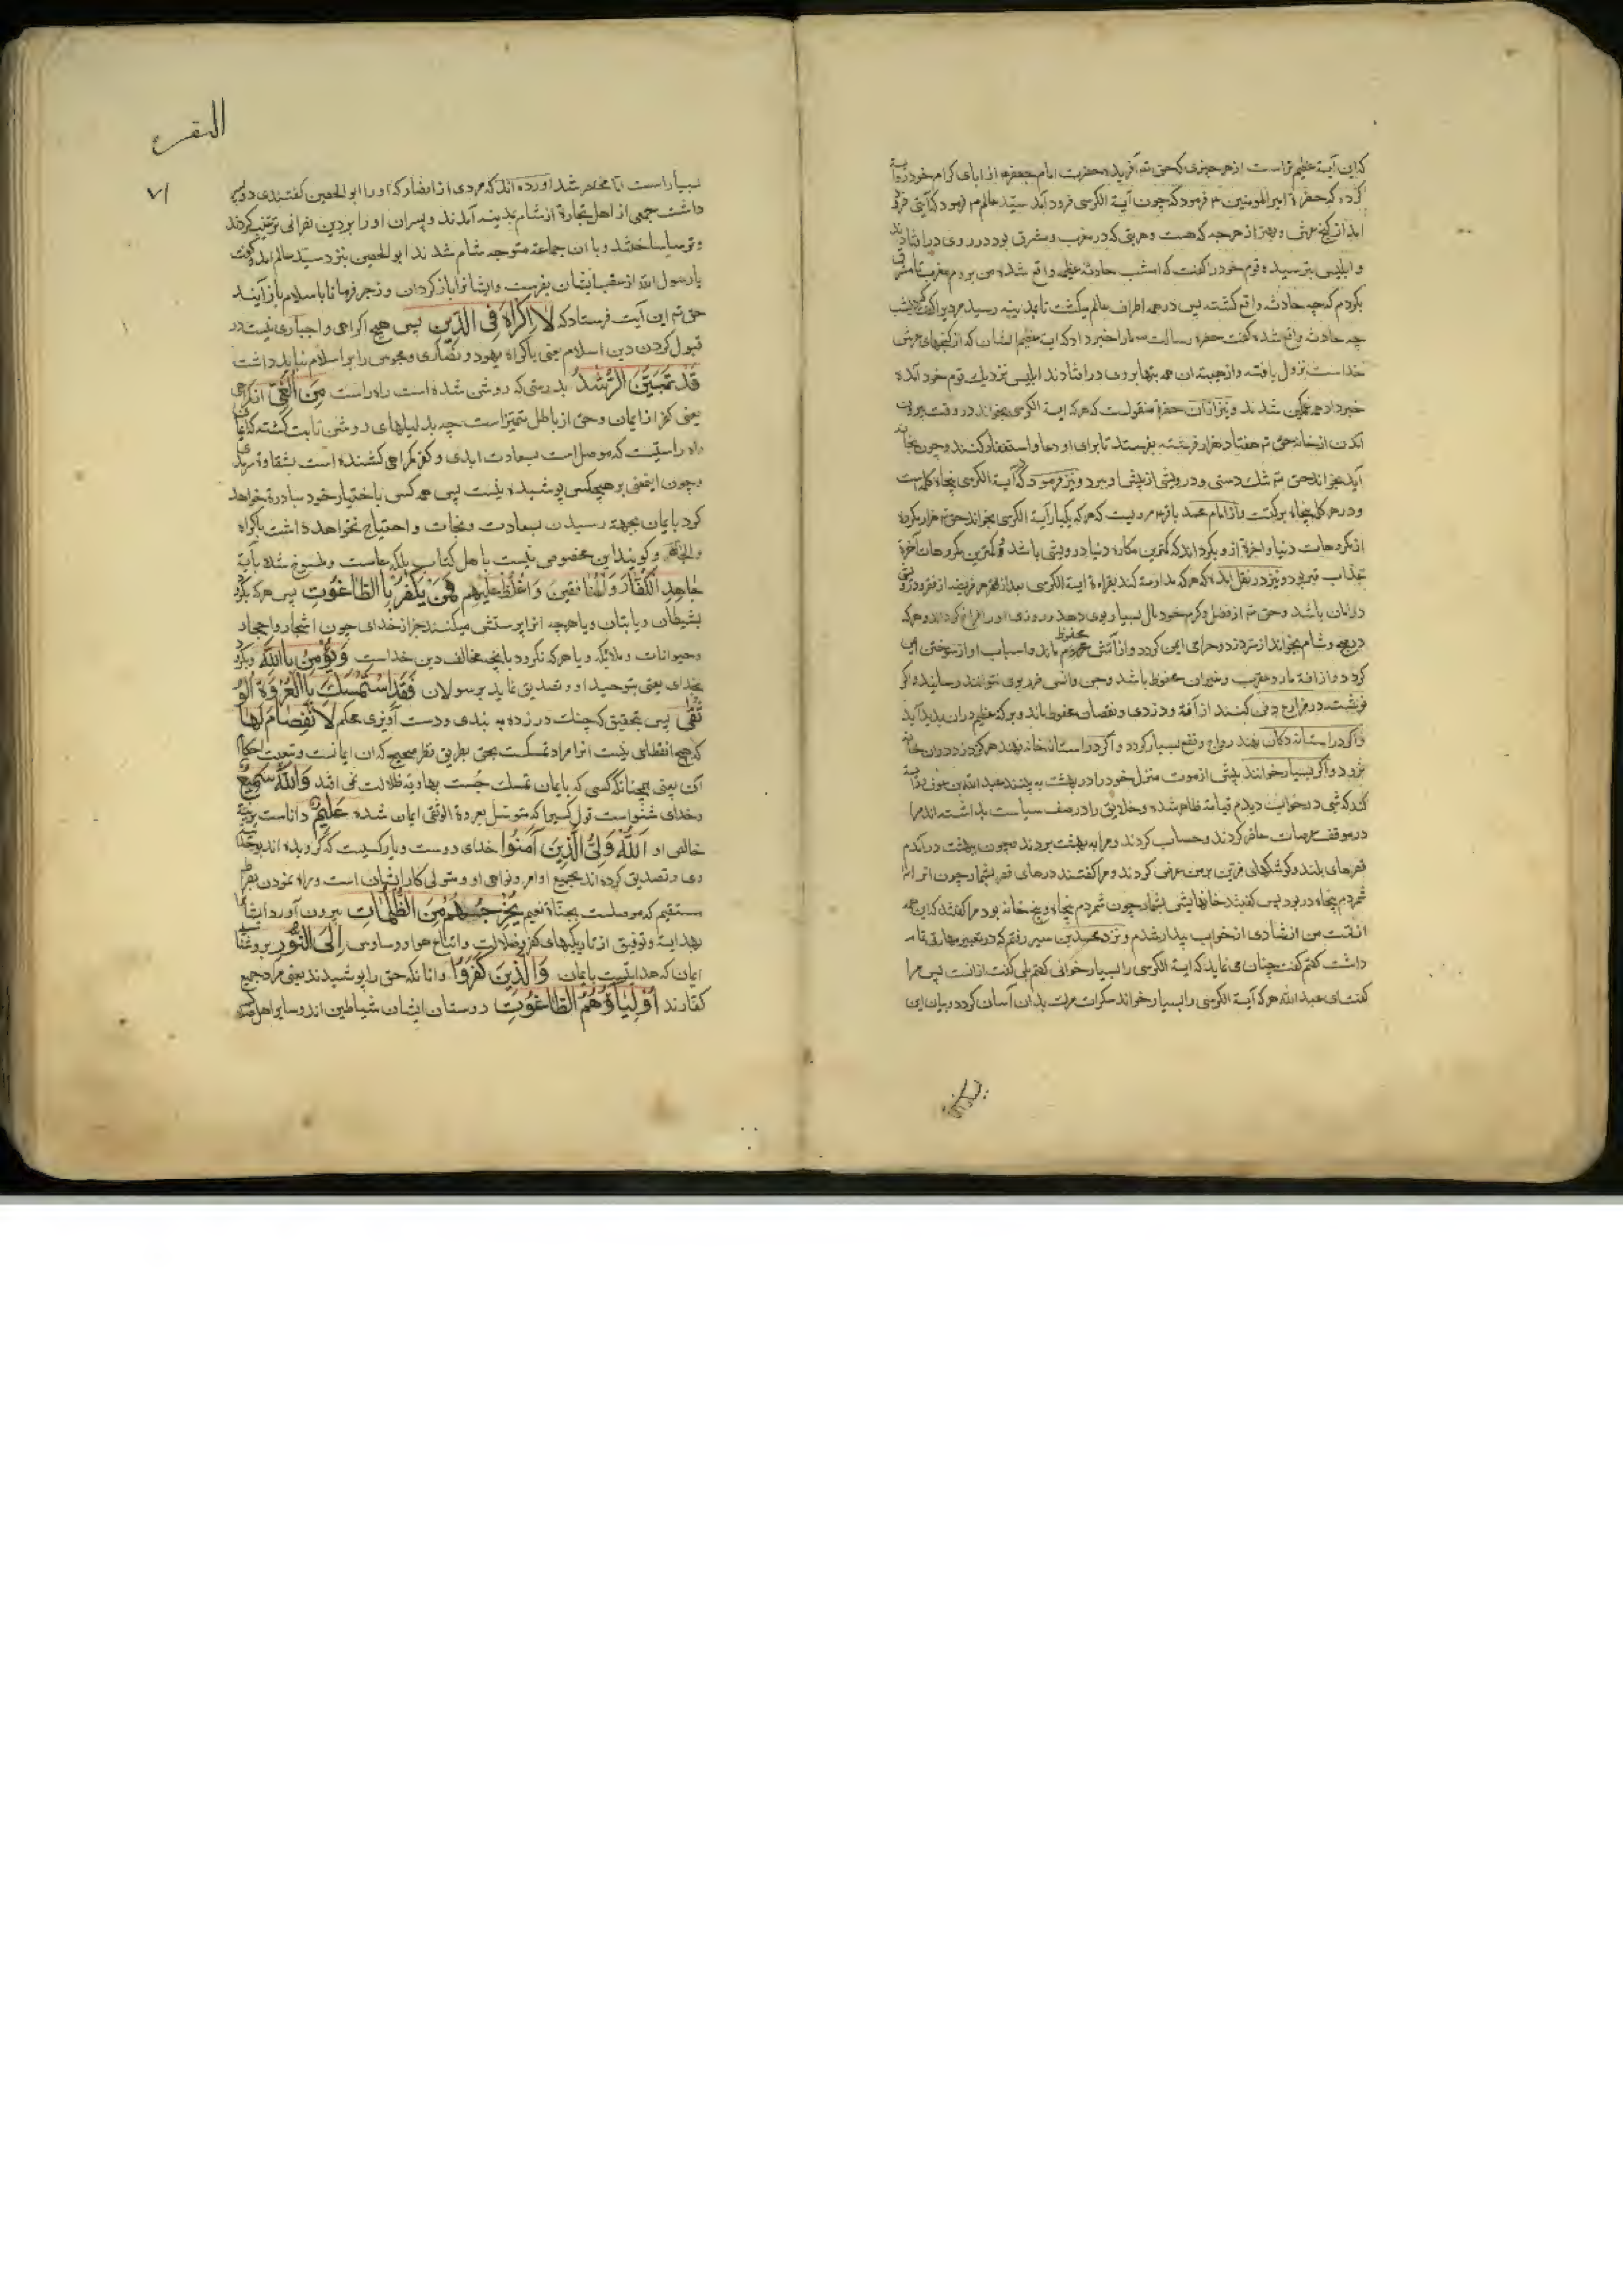 که این آیه عظیم تر است از هر چیزی که حق تع آفریده حضرت امام جعفر ع از ابای کرام خود روایة
کرده که حضرة امیر المومنین ع فرمود که چون آیة الکرسی فرود آمد سید عالم ص فرمود که آیتی فرو
امد از کنج عرش و بعد از هرچه که هست و هر بتی که در مغرب و مشرق بود در روی در افتادند
و ابلیس بترسید و قوم خود را کفت که امشب حادثه عظیم واقع شده من بروم مغرب تا مشرق
بکردم که چه حادثه واقع کشته پس در همه اطراف عالم میکشت تا بمدینه رسید مردیرا کفت که دیشب
چه حادث واقع شده کفت حضرة رسالت ما را خبر داد که ایه عظیم الشان که از کنجهای عرش
خداست نزول یافته و از جهت ان همه بتها بروی در افتادند ابلیس نزدیک قوم خود آمده
خبر داد همه غمکین شدند و نیز از آن حضرة منقولست که هر که ایة الکرسی بخواند در وقت بیرون
امدن از خانه حق تع هفتاد هزار فرشته بفرستد تا برای او دعا و استغفار کنند و چون بخانه
آید بخواند حق تع تنک دستی و درویشی از پیش او ببرد و نیز فرمود که آیة الکرسی پنجاه کلمه است
و در هر کلمه پنجاه برکت و از امام محمد باقر ع مرویست که هر که یکبار آیة الکرسی بخواند حق تع هزار مکروه
از مکروهات دنیا و اخرة از و بکرداند که کمترین مکاره دنیا درویشی باشد و کمترین مکروهات آخرة
عذاب قبر بود و نیز در نقل آمده که هر که مداومة کند بقراءة ایة الکرسی بعد از هر فریضه از فقر و درویشی
در امان باشد و حق تع از فضل و کرم خود مال بسیار بوی دهد و روزی او را فراخ کرداند و هر که
در بام و شام بخواند از دزد و حرامی ایمن کردد و از آتش محفوظ ماند و اسباب او از سوختن ایمن
کردد و از افة مار و عقرب و غیران محفوظ باشد و جن و انس ضرر بوی نتوانند رسانید و اکر
نوشته در مزارع دفن کنند از آفة و دزدی و نقصان محفوظ ماند و برکة عظیم در ان پدید آید
و اکر در استانه دکان نهند رواج و نفع بسیار کردد و اکر در استانه خانه نهند هرکز دزد در ان خانه
نرود و اکر بسیار خوانند پیش از موت منزل خود را در بهشت به بینند عبد الله بن عوف روایة
کند که شبی در خواب دیدم قیامة ظاهر شده و خلایق را در صف سیاست بداشته اند مرا
در موقف عرصات حاضر کردند و حساب کردند و مرا به بهشت بردند چون ببهشت در آمدم
قصرهای بلند و کوشکهای مزین بر من عرض کردند و مرا کفتند درهای قصر بشمار چون انرا
شمردم پنجاه در بود پس کفتند خانهایش بشمار چون شمردم پنجاه و پنج خانه بود مرا کفتند که این همه
از تست من از شادی از خواب بیدار شدم و نزد محمد بن سیرین رفتم که در تعبیر مهارتی تمام
داشت کفتم کفت چنان می نماید که ایة الکرسی را بسیار خوانی کفتم بلی کفت از انست پس مرا
کفت ای عبد الله هر که آیة الکرسی را بسیار خواند سکرات موت بدان آسان کردد و بیان این
البقره
۷۱
بسیار است تا مختصر شد اورده اند که مردی از انصار که او را ابو الحصین کفتندی دو پسر
داشت جمعی از اهل تجارة از شام بمدینه آمدند و پسران او را بر دین نصرانی ترغیب کردند
و ترسا ساختند و با ان جماعة متوجه شام شدند ابو الحصین بنزد سید عالم امد و کفت
یا رسول الله از عقب ایشان بفرست و ایشانرا باز کردان و زجر فرما تا باسلام باز آیند
حق تع این آیت فرستاد که لَا اِكْرَاهَ فِی الدِّينِ پس هیچ اکراهی و اجباری نیست در
قبول کردن دین اسلام یعنی باکراه یهود و نصاری و مجوس را بر اسلام نباید داشت
قَدْ تَبَيَّنَ الرُّشْدُ بدرستی که روشن شده است راه راست مِنَ الْغَیِّ از کمراهی
یعنی کفر از ایمان و حق از باطل متمیز است چه بدلیلهای روشن ثابت کشته که ایمان
راه راستیست که موصل است بسعادت ابدی و کفر کمراهی کشنده است بشقاوة سرمدی
و چون اینمعنی بر هیچکس پوشیده نیست پس همه کس باختیار خود مبادرة خواهد
کرد بایمان بجهة رسیدن بسعادت و نجات و احتیاج نخواهد داشت باکراه
و الجاء و کویند این مخصوص نیست باهل کتاب بلکه عامست و منسوخ شده بآیة
جَاهِدِ الْكُفَّارَ وَالْمُنَافِقِينَ وَاغْلُظْ عَلَيْهِمْ فَمَنْ يَكْفُرْ بِالطَّاغُوتِ پس هر که نکرود
بشیطان و یا بتان و یا هرچه انرا پرستش میکنند جز از خدای چون اشجار و احجار
و حیوانات و ملائکه و یا هر که نکرود بانچه مخالف دین خداست وَيُؤْمِنْ بِاللهِ و بکرود
بخدای یعنی بتوحید او و تصدیق نماید برسولان فَقَدِ اسْتَمْسَكَ بِالْعُرْوَةِ الْوُ
ثْقَی پس بتحقیق که چنک در زده به بندی و دست آویزی محکم لَا انْفِصَامَ لَهَا
که هیچ انقطاعی نیست انرا مراد تمسکست بحق بطریق نظر صحیح که ان ایمانست و تبعیت احکام
ان یعنی همچنانکه کسی که بایمان تمسک جست بهاویه ظلالت نمی افتد وَاللهُ سَمِيعٌ
و خدای شنواست قول کسیرا که متوسل بعروة الوثقی ایمان شده عَلِيمٌ داناست بر نیت
خالص او اَللهُ وَلِیُّ الَّذِينَ آمَنُوا خدای دوست و یار کسیست که کرویده اند بوحدانیة
وی و تصدیق کرده اند بجمیع اوامر و نواهی او و متولی کار ایشان است و راه نمودن بصراط
مستقیم که موصلست بجنات نعیم يُخْرِجُهُمْ مِنَ الظُّلُمَاتِ بیرون آورد ایشانرا
بهدایة و توفیق از تاریکیهای کفر و ضلالت و اتباع هوا و وساوس اِلَی النُّورِ بروشنائی
ایمان که هدایتست بایمان وَالَّذِينَ كَفَرُوا و انانکه حق را پوشیدند یعنی مراد جمیع
کفارند اَوْلِيَاؤُهُمُ الطَّاغُوتُ دوستان ایشان شیاطین اند و سایر اهل